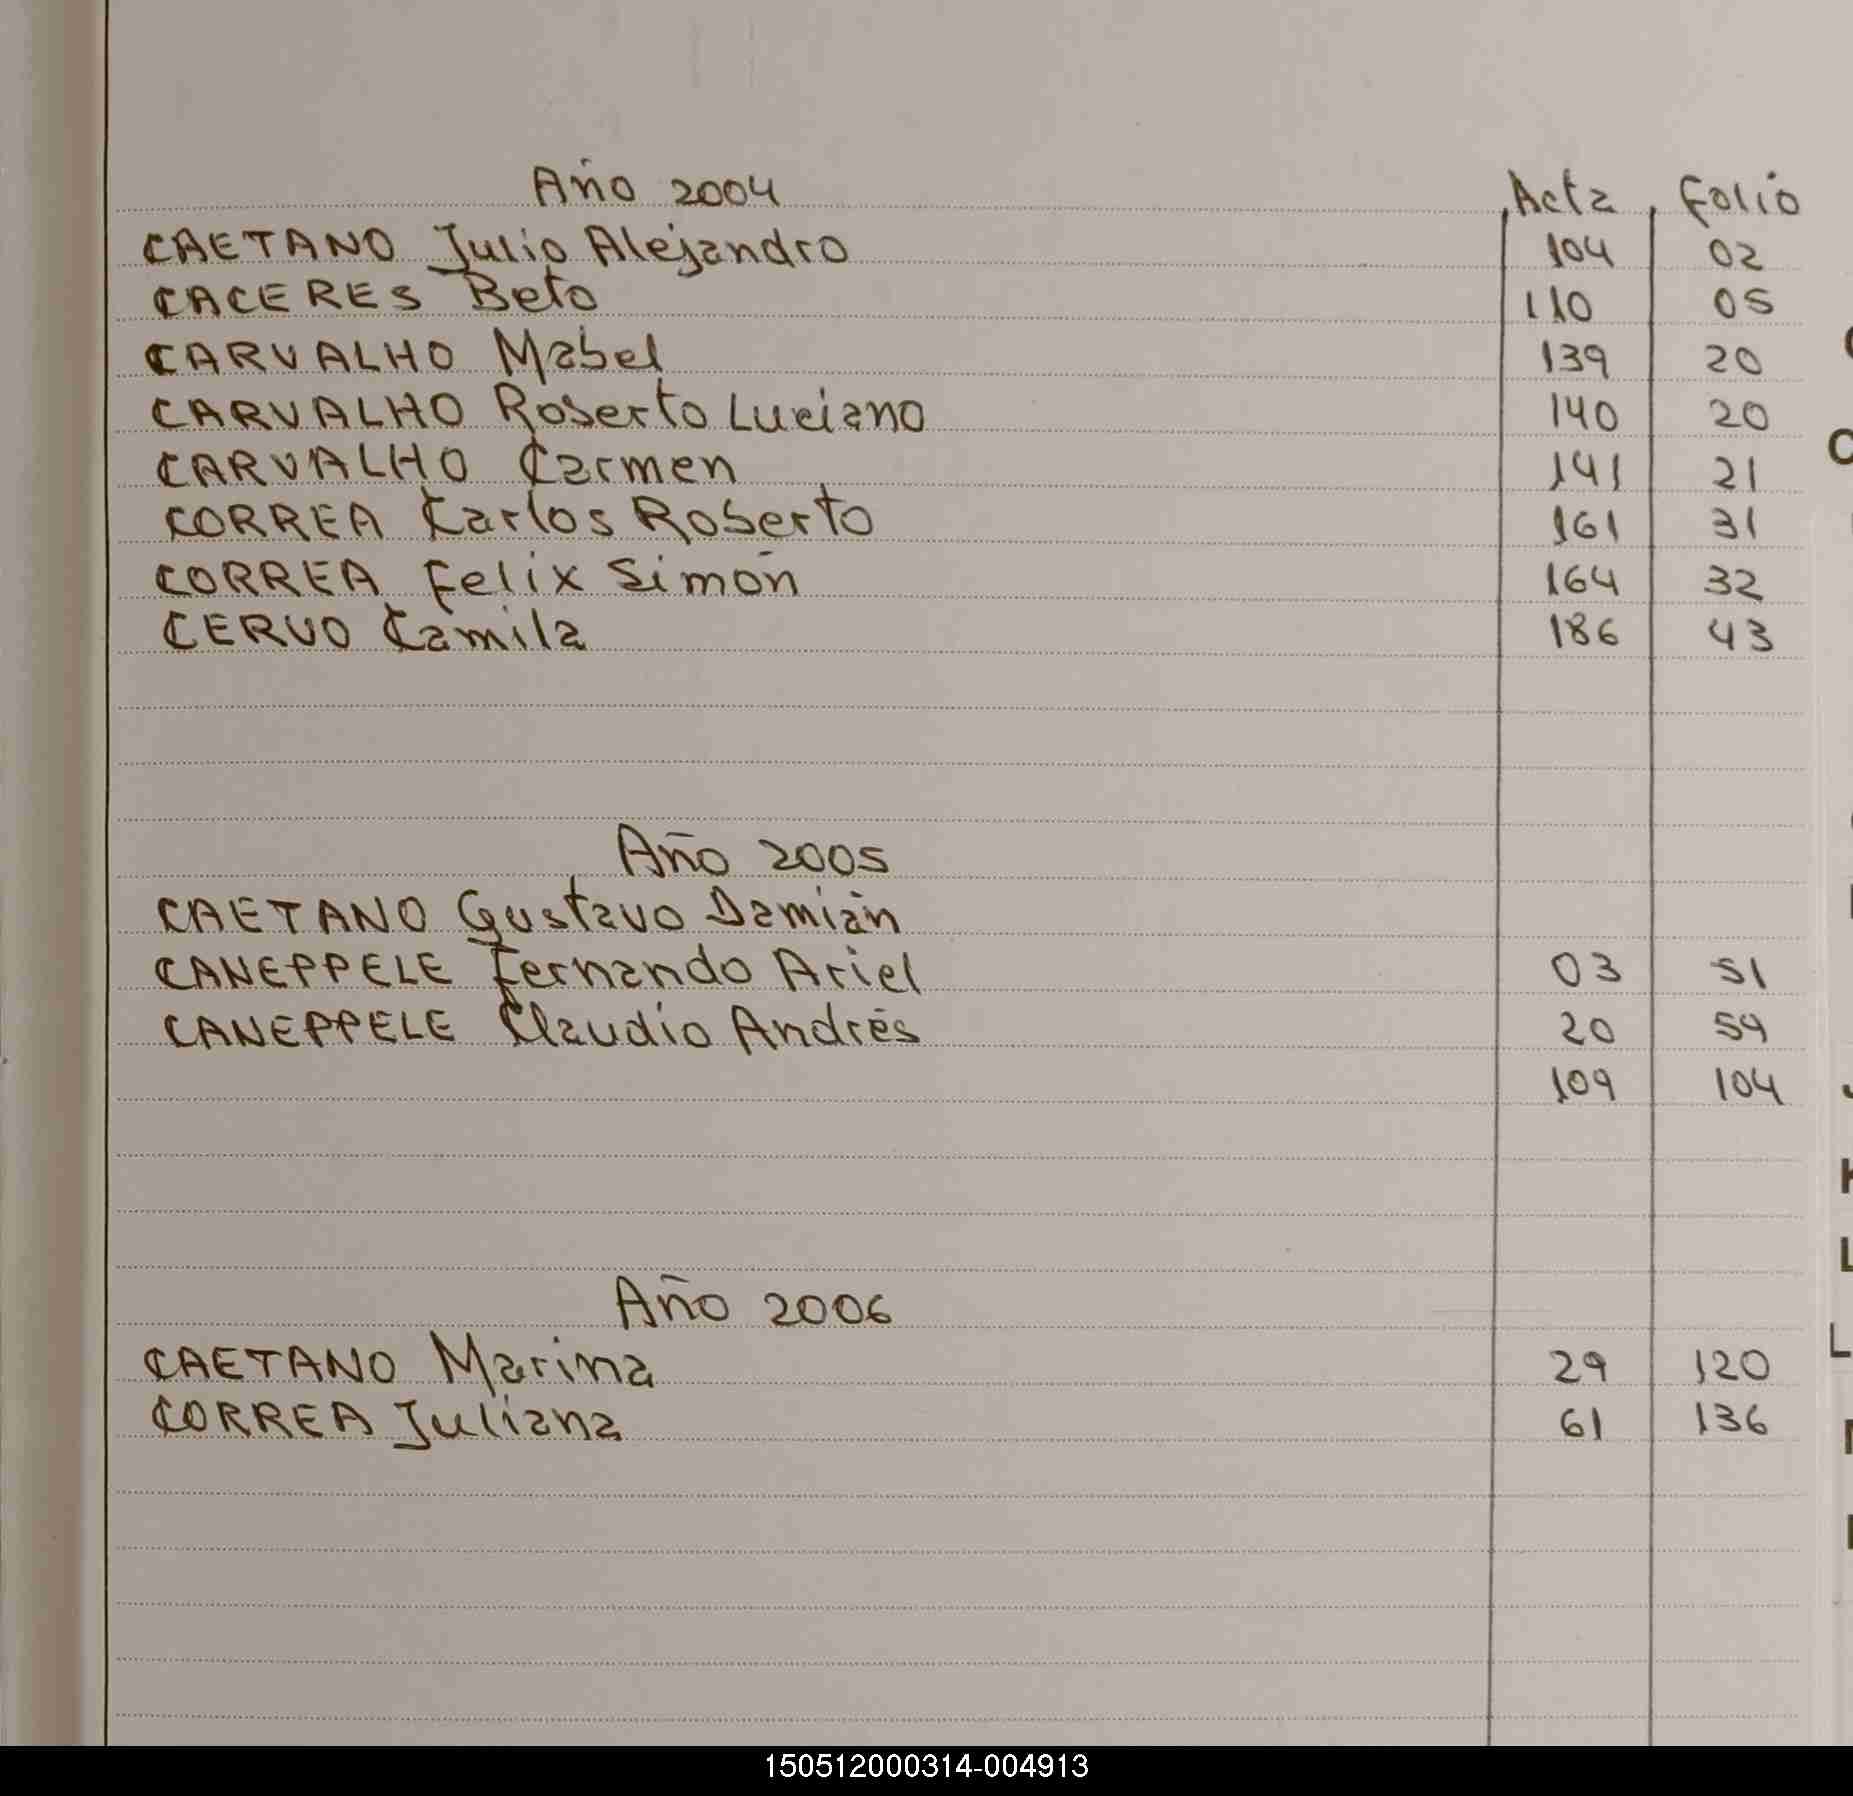 Año 2004 Acta Folio
CAETANO Julio Alejandro 104 02
CACERES Beto 110 05
CARVALHO Mabel 139 20
CARVALHO Roberto Luciano 140 20
CARVALHO Carmen 141 21
CORREA Carlos Roberto 161 31
CORREA Felix Simón 164 32
CERVO Camila 186 43
Año 2005
CAETANO Gustavo Damián
CANEPPELE Fernando Ariel 03 51
CANEPPELE Claudio Andrés 20 59
109 104
Año 2006
CAETANO Marina 29 120
CORREA Juliana 61 136
150512000314-004913